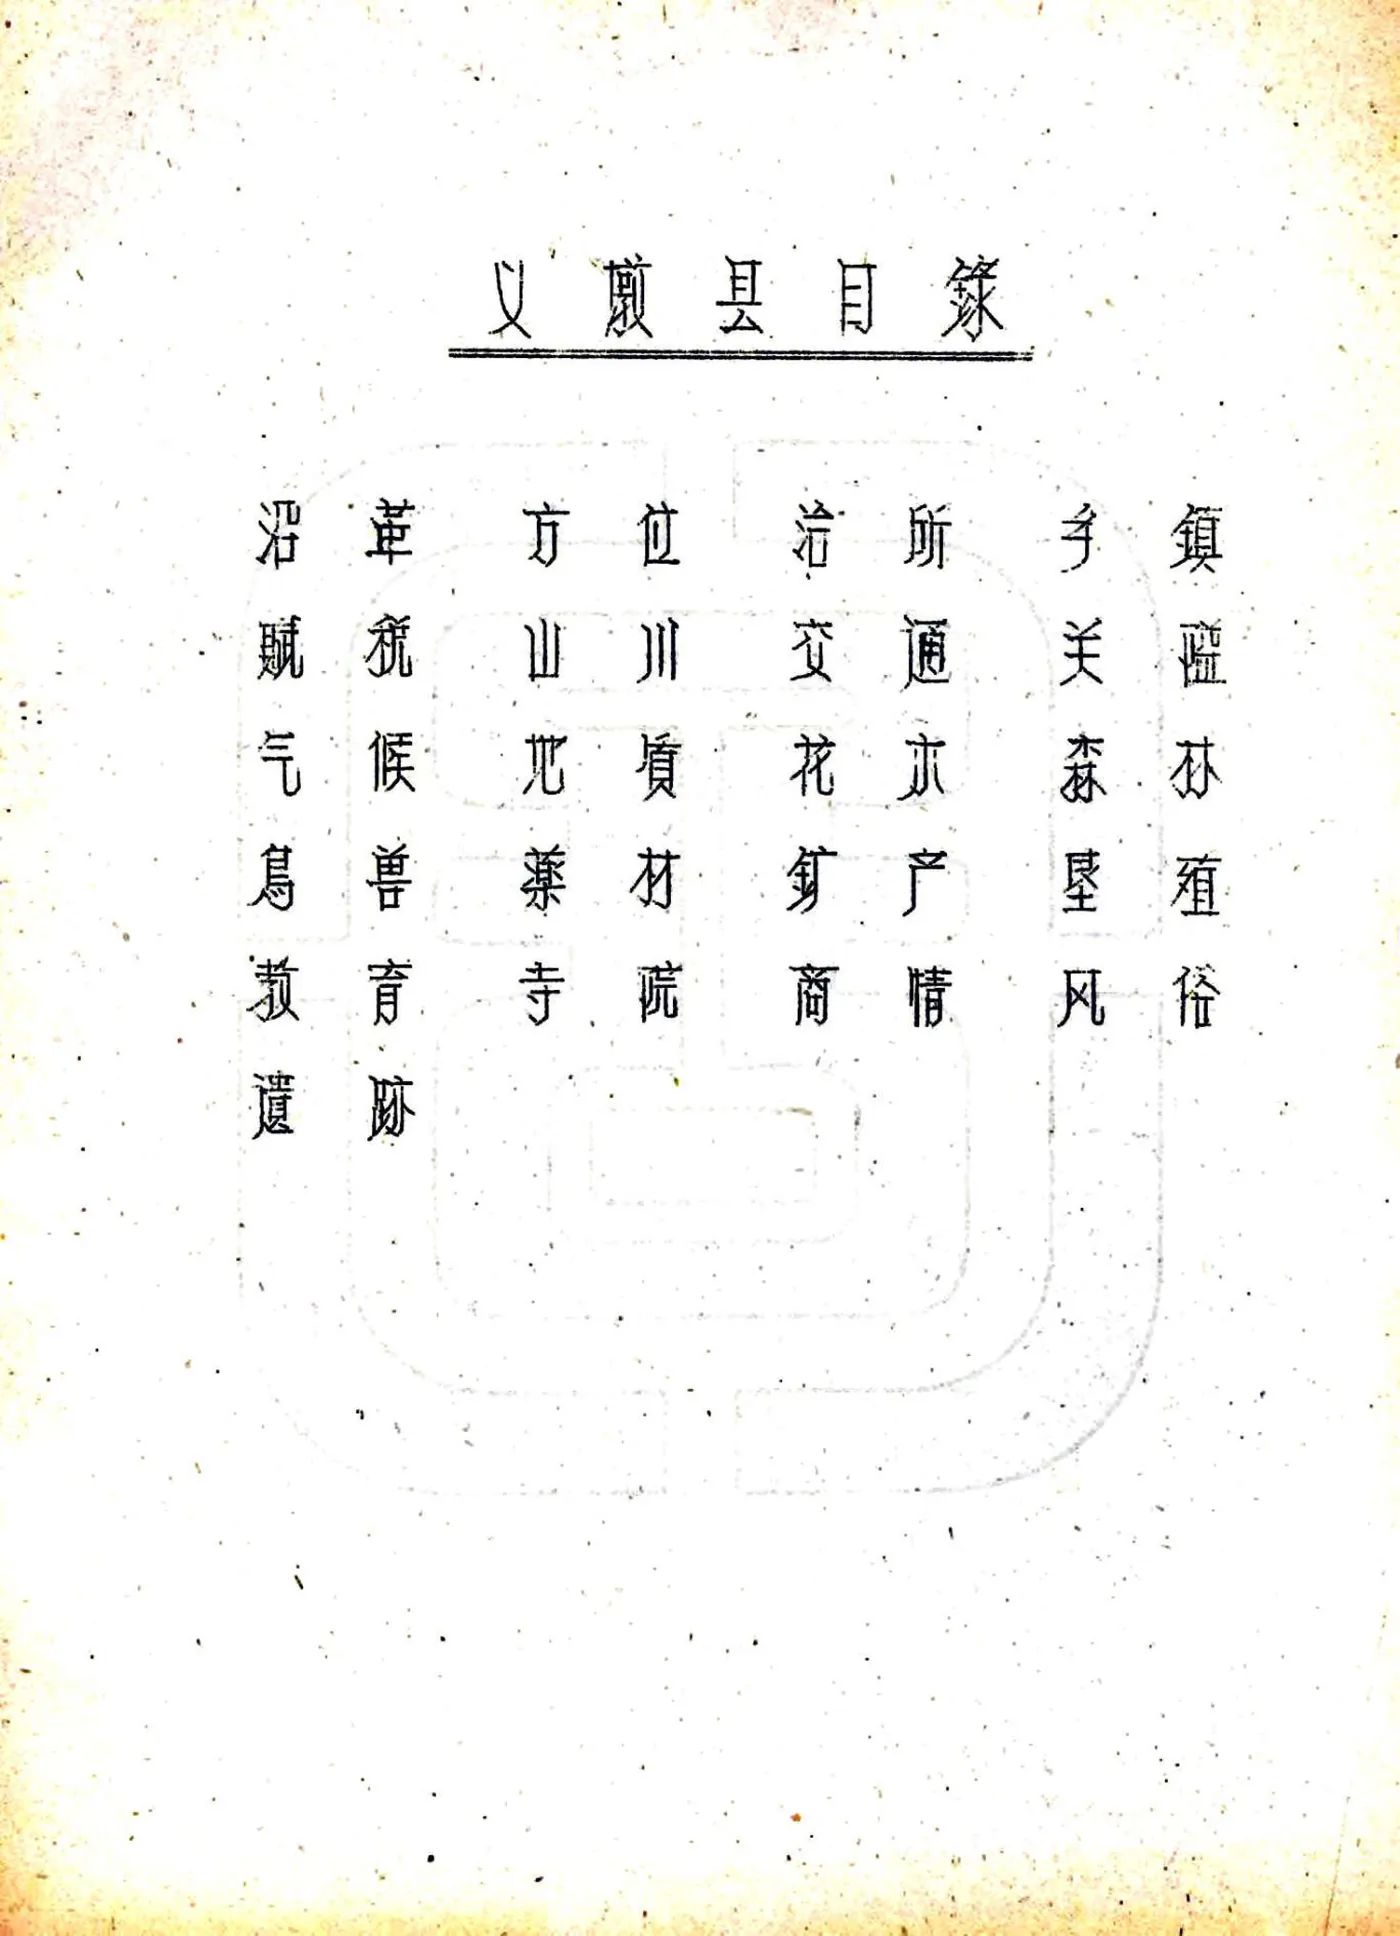 义敦县目録
沿革 方位 治所 乡镇
賦税 山川 交通 关隘
气候 地質 花木 森林
鳥兽 薬材 鉱产 垦殖
教育 寺院 商情 风俗
遺跡